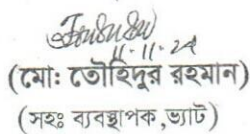 11-11-24
(মো: তৌহিদুর রহমান)
(সহঃ ব্যবস্থাপক,ভ্যাট)